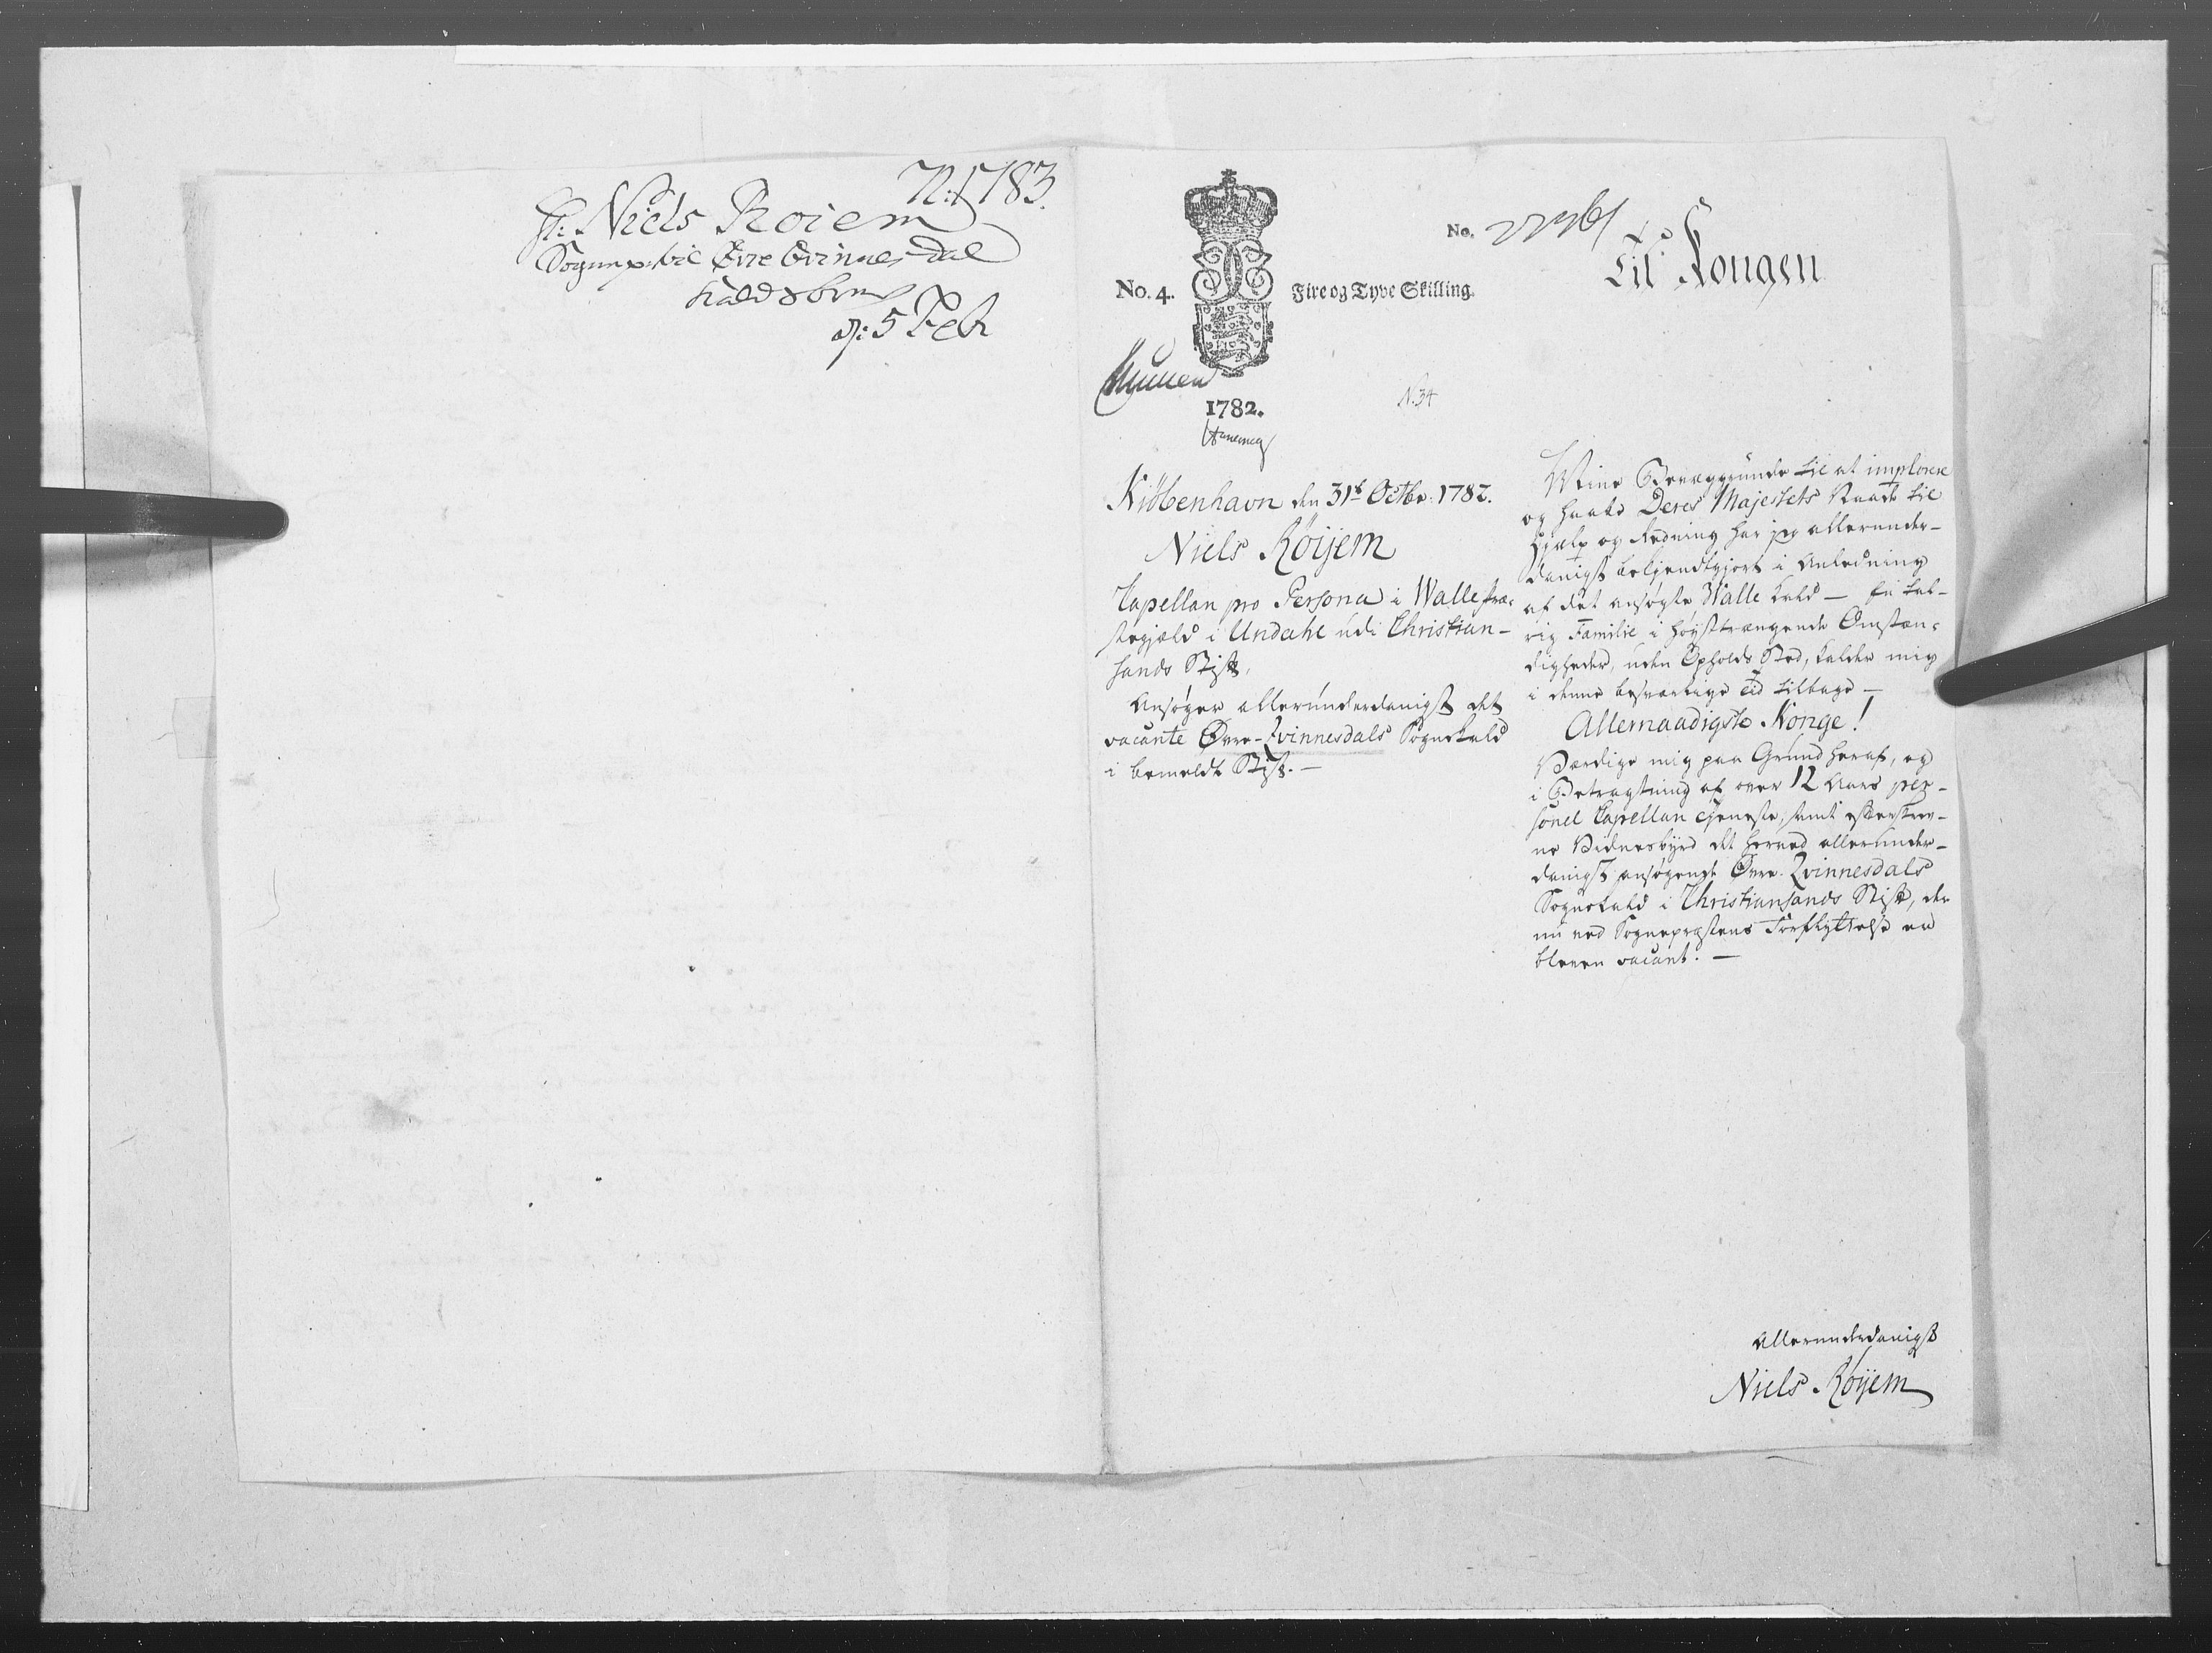 N: 1783.
Hr: Niels Roiem
Sognepr: til Øvre Qvinnesdal
Kaldsbrev
d: 5 Febr
No. 4.
Fire og Tyve Skilling.
No.
Til Kongen
1782.
N. 34
Kiöbenhavn den 31t Octbr: 1782.
Niels Röijem
Capellan pro Persona i Walle Præ-
stegjæld i Undahl udi Christian-
sands Stift,
Ansøger allerunderdanigst det
vacante Øvre-Qvinnesdals Sognekald
i bemeldte Stift. —
Mine Bevæggrunde til at implorere
og haabe Deres Majestets Naade til
Hjælp og Redning har jeg allerunder-
danigst bekjendtgjort i Anledning
af det ansøgte Walle Kald — En tal-
rig Familie i høysttrængende Omstæn-
digheder, uden Opholds Sted, kalder mig
i denne besværlige Tid tilbage —
Allernaadigste Konge!
Værdige mig paa Grund heraf, og
i Betragtning af over 12 Aars per-
sonel Capellan Tjeneste, samt efterskrev-
ne Vidnesbyrd det herved allerunder-
danigst ansøgende Øvre-Qvinnesdals
Sognekald i Christiansands Stift, der
nu ved Sognepræstens Forflyttelse er
bleven vacant. —
Allerunderdanigst
Niels Röijem